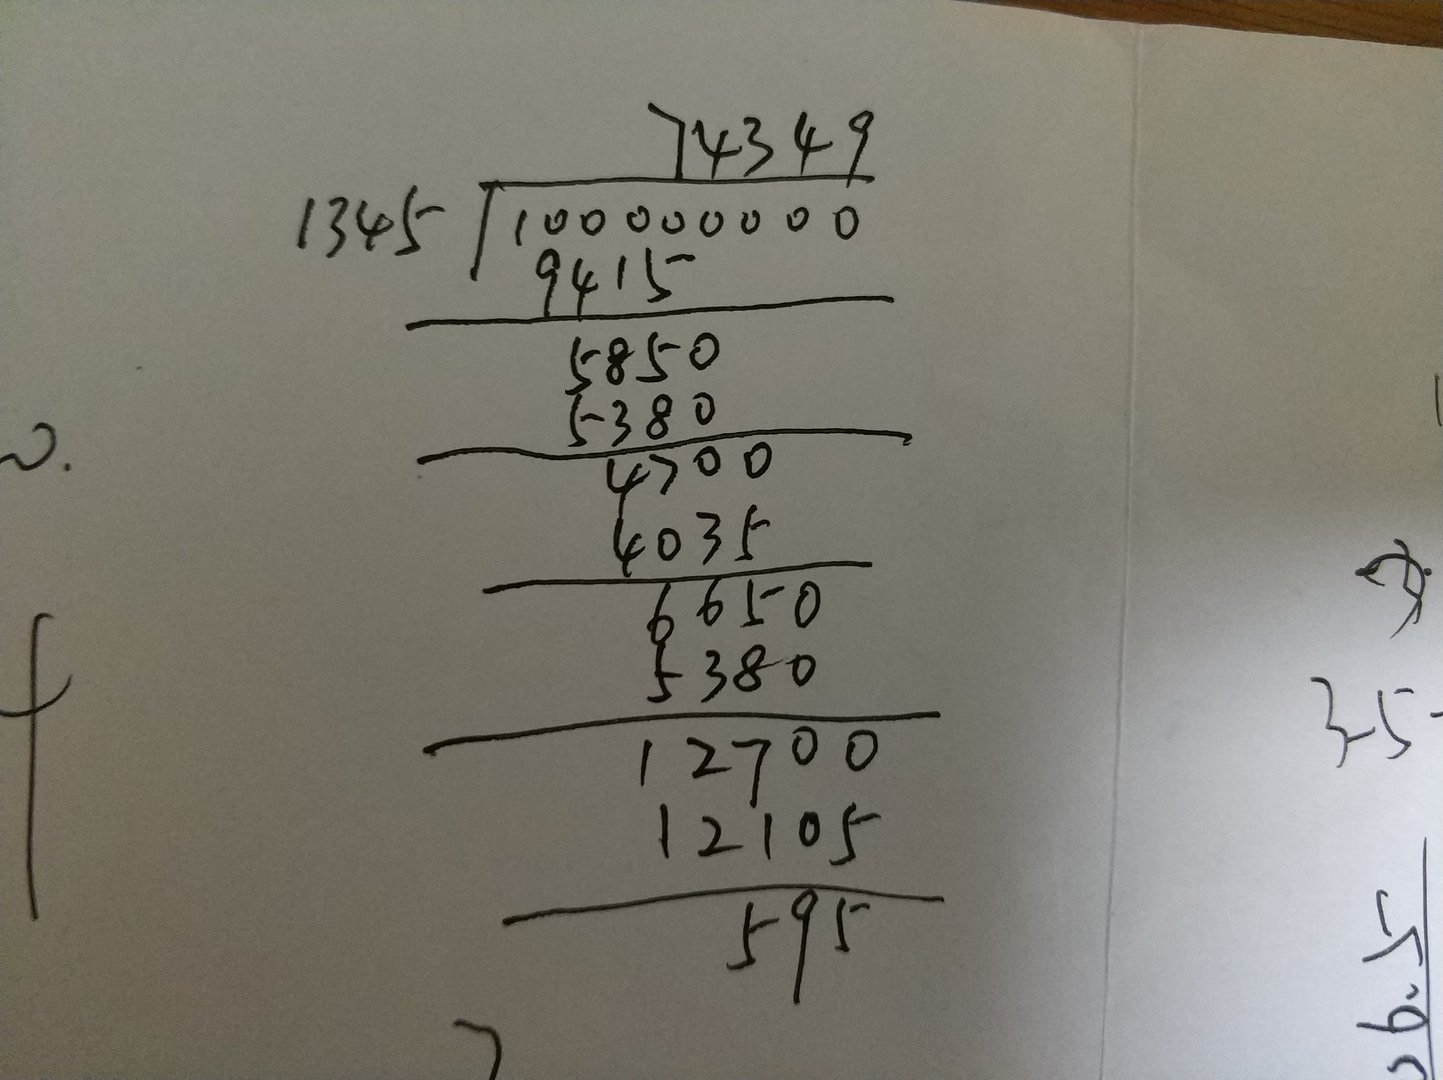 74349
1345 100000000
9415
5850
5380
4700
4035
6650
5380
12700
12105
595